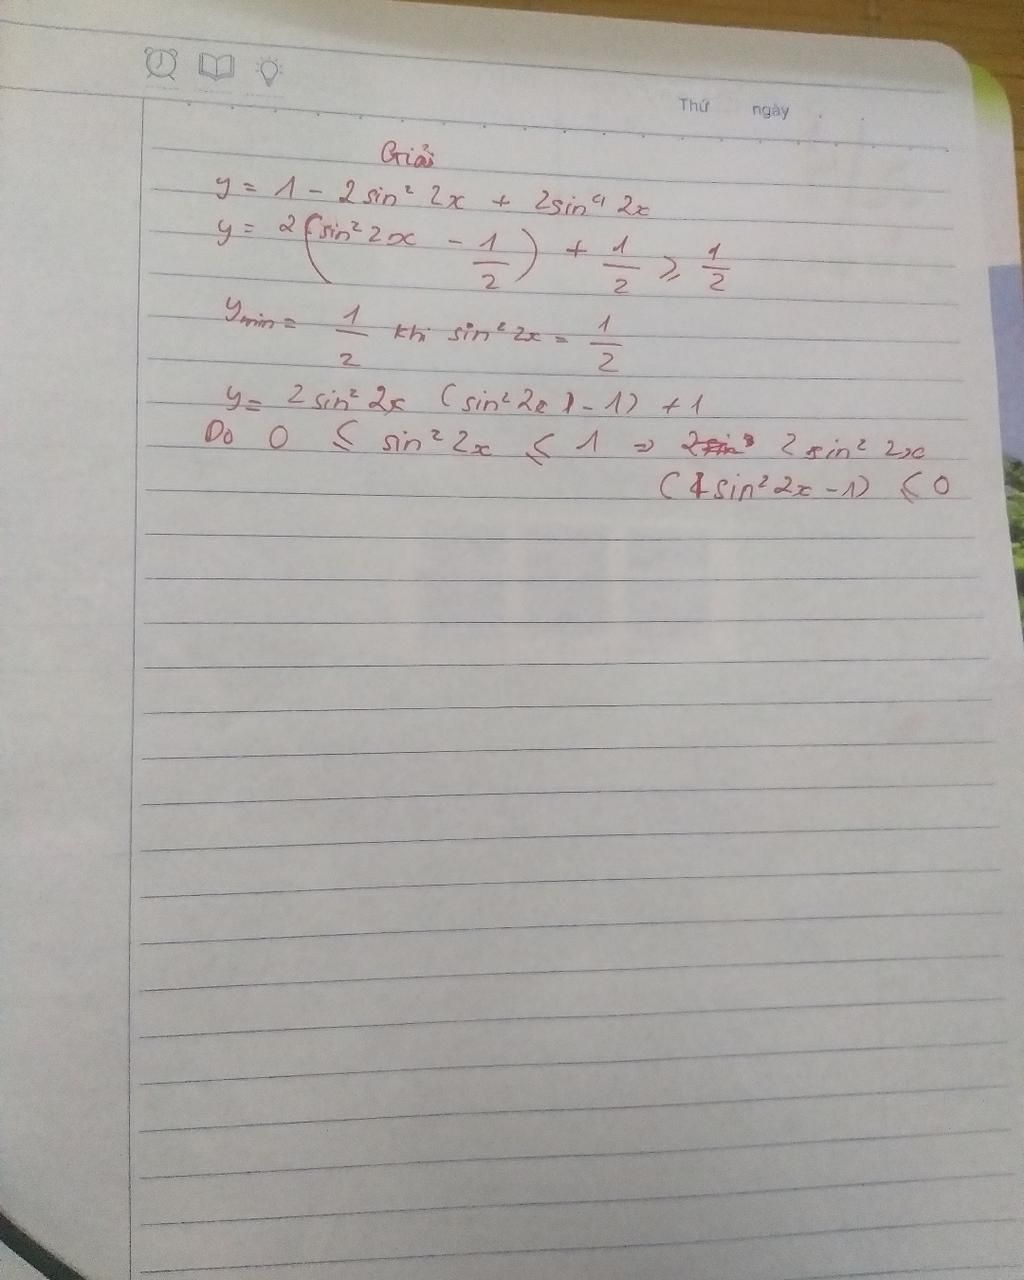 Thứ ngày
Giải
y = 1 - 2 sin² 2x + 2sin⁴ 2x
y = 2(sin² 2x - 1/2) + 1/2 ⩾ 1/2
y min = 1/2 khi sin² 2x = 1/2
y = 2 sin² 2x (sin² 2x) - 1) + 1
Do 0 ⩽ sin² 2x ⩽ 1 ⇒ 2 sin² 2x
(sin² 2x - 1) ⩽ 0